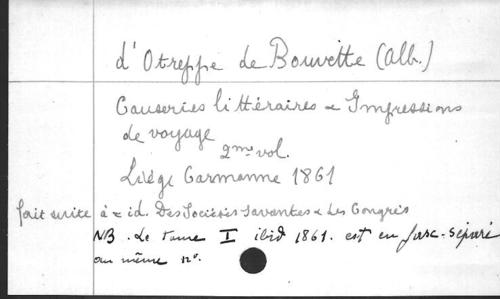 d'Otreppe de Bouvette (Alb.)
Causeries littéraires & Impressions
de voyage
2me vol.
Liége Carmanne 1861
fait suite à = id. Des Sociétés Savantes & des Congrès
NB. Le tome I ibid 1861. est en fasc. séparé
au même n°.